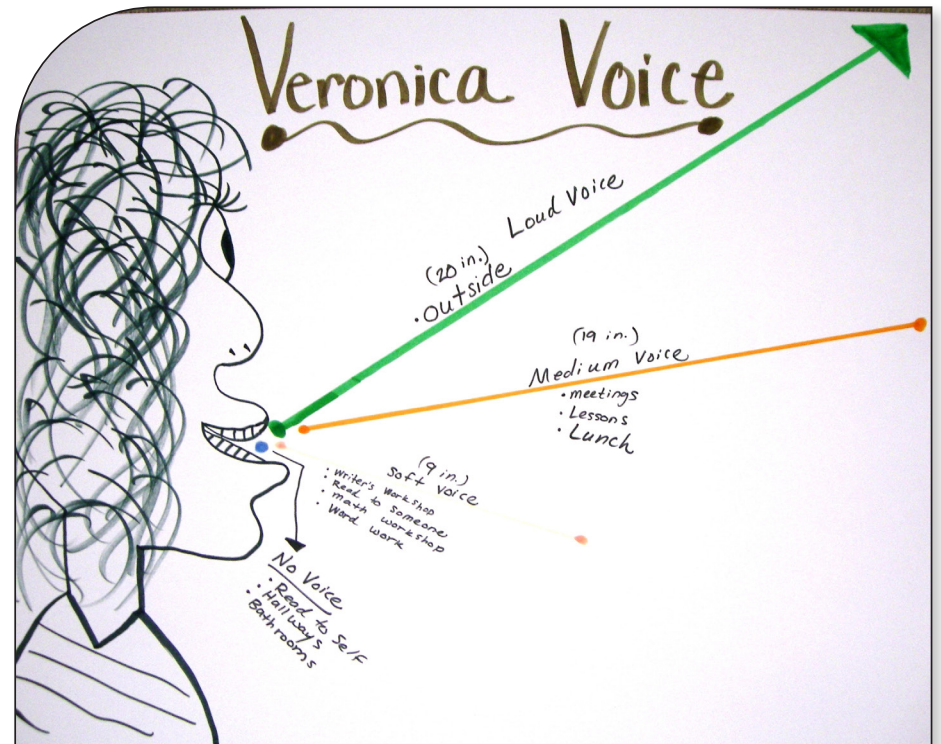 Veronica Voice
Loud Voice
(20 in.)
• Outside
(19 in.)
Medium Voice
• meetings
• Lessons
• Lunch
(9 in.)
Soft Voice
• Writer's Workshop
• Read to Someone
• Math Workshop
• Word Work
No Voice
• Read to Self
• Hallways
• Bathrooms